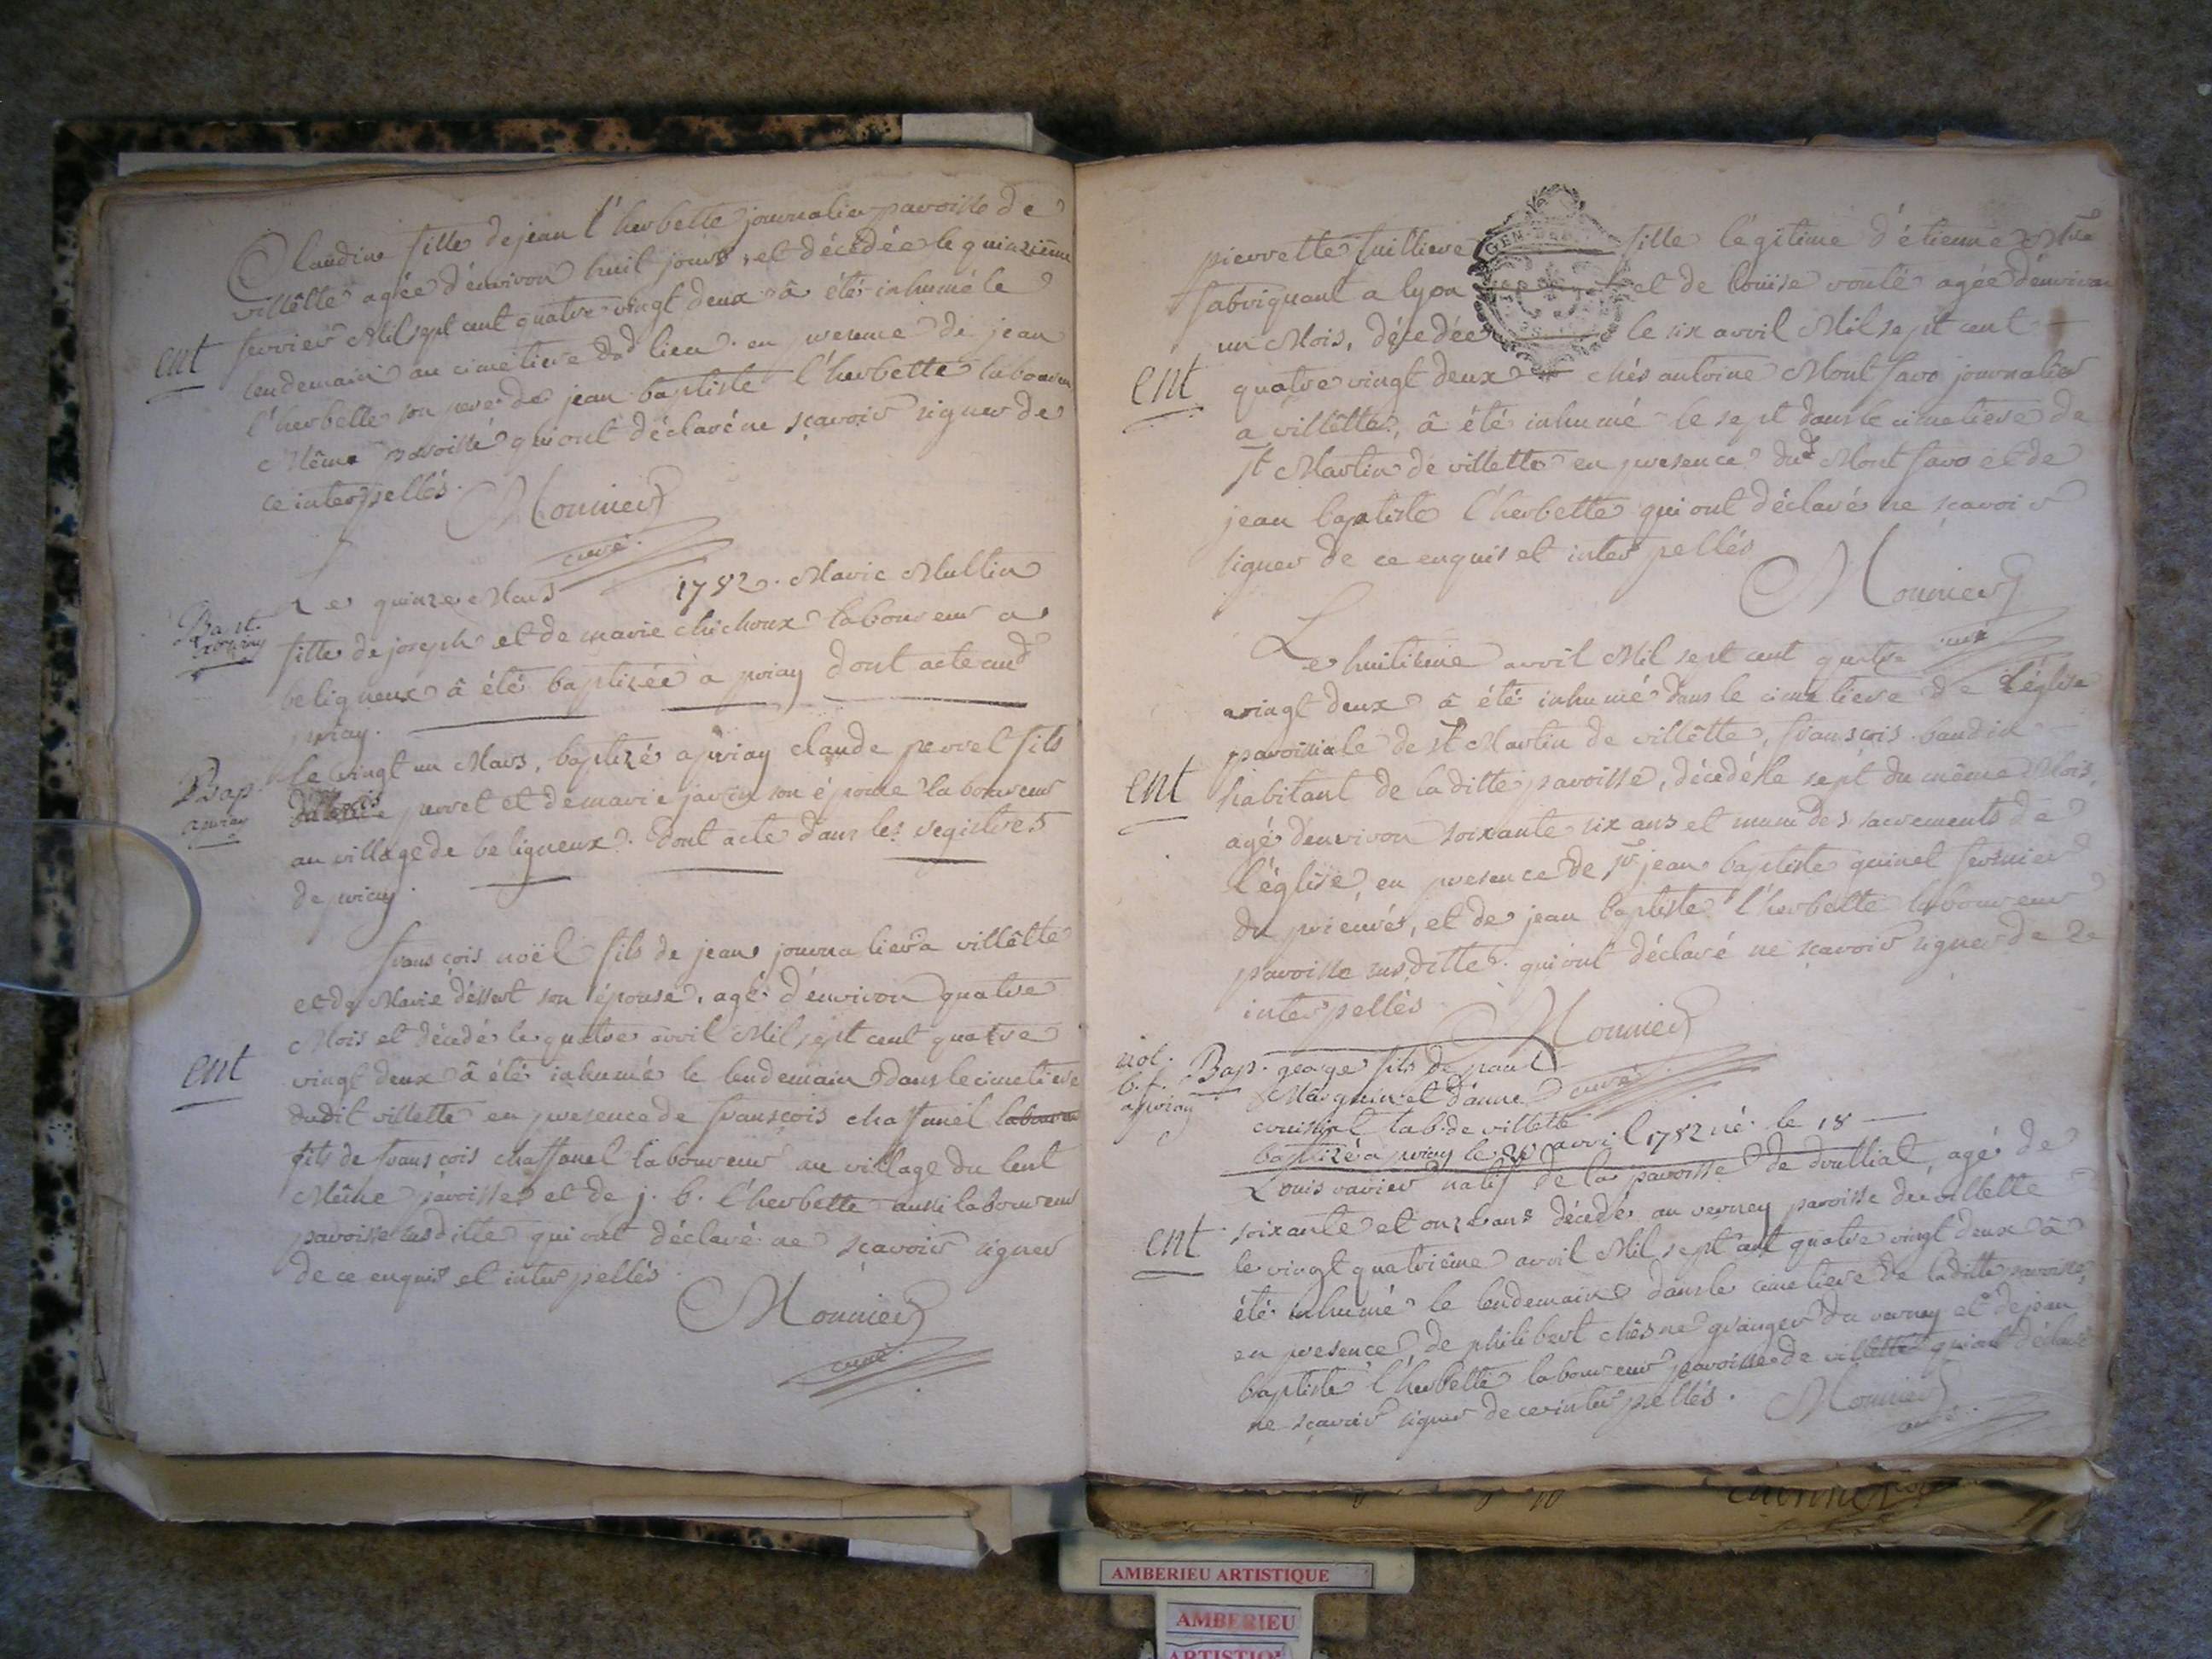 Claudine fille de jean l'herbette journalier paroisse de
villêtte agée d'environ huit jours, et décédée le quinzieme
ent
fevrier Mil sept cent quatre vingt deux â été inhumé le
lendemain au cimetiere dud lieu en presence de jean
l'herbette son pere de jean baptiste l'herbette laboureur
Même paroisse qui ont déclaré ne sçavoir signer de
ce interpellés.
Monnier
curé.
Bapt.
a priay
Le quinze Mars 1782. Marie Multin
fille de joseph et de marie chichoux laboureur a
beligneux â été baptizée a priay dont acte aud
priay.
Bap.
a priay
Le vingt un Mars, baptizé a priay claude perret fils
perret et de marie son épouse laboureur
au village de beligneux. Dont acte dans les registres
de priay.
françois noël fils de jean journalier a villêtte
et de Marie déssert son épouse, agé d'environ quatre
Mois et décédé le quatre avril Mil sept cent quatre
ent
vingt deux â été inhumé le lendemain dans le cimetiere
dudit villette en presence de françois chaffanel laboureur
fils de françois chaffanel laboureur au village du lent
Même paroisse et de j. b. l'herbette aussi laboureur
paroisse susditte qui ont déclaré ne sçavoir signer
de ce enquis et interpellés.
Monnier
curé.
GEN
pierrette fuilliere fille légitime d'étienne
fabriquant a lyon et de loüise voute agée d'environ
un Mois, décedée le six avril Mil sept cent
ent
quatre vingt deux chés antoine Montfavo journalier
a villêtte, â été inhumé le sept dans le cimetiere de
st Martin de villette en presence dud Montfavo et de
jean baptiste l'herbette qui ont déclaré ne sçavoir
signer de ce enquis et interpellés
Monnier
curé
Le huitieme avril Mil sept cent quatre
vingt deux â été inhumé dans le cimetiere de l'église
paroissiale de st Martin de villêtte, françois baudin
ent
habitant de laditte paroisse, décédé le sept du même Mois,
agé d'environ soixante six ans et muni des sacrements de
l'église, en presence de sr jean baptiste quinet fermier
du prieuré, et de jean baptiste l'herbette laboureur
paroisse susditte. qui ont déclaré ne sçavoir signer de ce
interpellés
Monnier
curé.
Bap. george fils de paul
b.f.
a priay
Marguin et d'anne
lab. de villette
baptizé a priay le 20 avril 1782 né le 18
Louis varvier natif de la paroisse de druilliat, agé de
ent
soixante et onze ans décédé au verney paroisse de villette
le vingt quatrieme avril Mil sept cent quatre vingt deux â
été inhumé le lendemain dans le cimetiere de laditte paroisse,
en presence, de philibert chêne granger du verney et de jean
baptiste l'herbette laboureur paroisse de villette qui ont déclaré
ne sçavoir signer de ce interpellés.
Monnier
curé.
AMBERIEU ARTISTIQUE
AMBERIEU
ARTISTIQUE